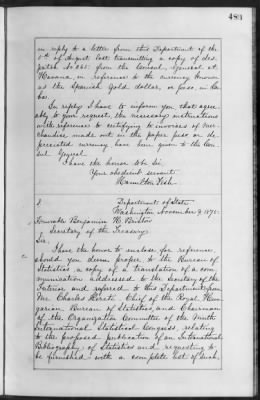 483
in reply to a letter from this Department of the
5th of August last transmitting a copy of des-
patch No 265 from the Consul General at
Havana, in reference to the currency known
as the Spanish Gold dollar, or peso, in Cu-
ba.
In reply I have to inform you that agree-
ably to your request, the necessary instructions
with reference to certifying to invoices of mer-
chandise made out in the paper peso or de-
preciated currency have been given to the Con-
sul General.
I have the honor to be Sir,
Your obedient servant
Hamilton Fish.
Department of State
Washington November 9, 1875.
Honorable Benjamin H. Bristow
Secretary of the Treasury.
Sir:
I have the honor to enclose for reference,
should you deem proper to the Bureau of
Statistics a copy of a translation of a com-
munication addressed to the Secretary of the
Interior and referred to this Department, from
Mr Charles Keleti Chief of the Royal Hun-
garian Bureau of Statistics, and Chairman
of the Organization Committee of the Ninth
International Statistical Congress, relating
to the proposed publication of an International
Bibliography of Statistics and requesting to
be furnished with a complete list of such